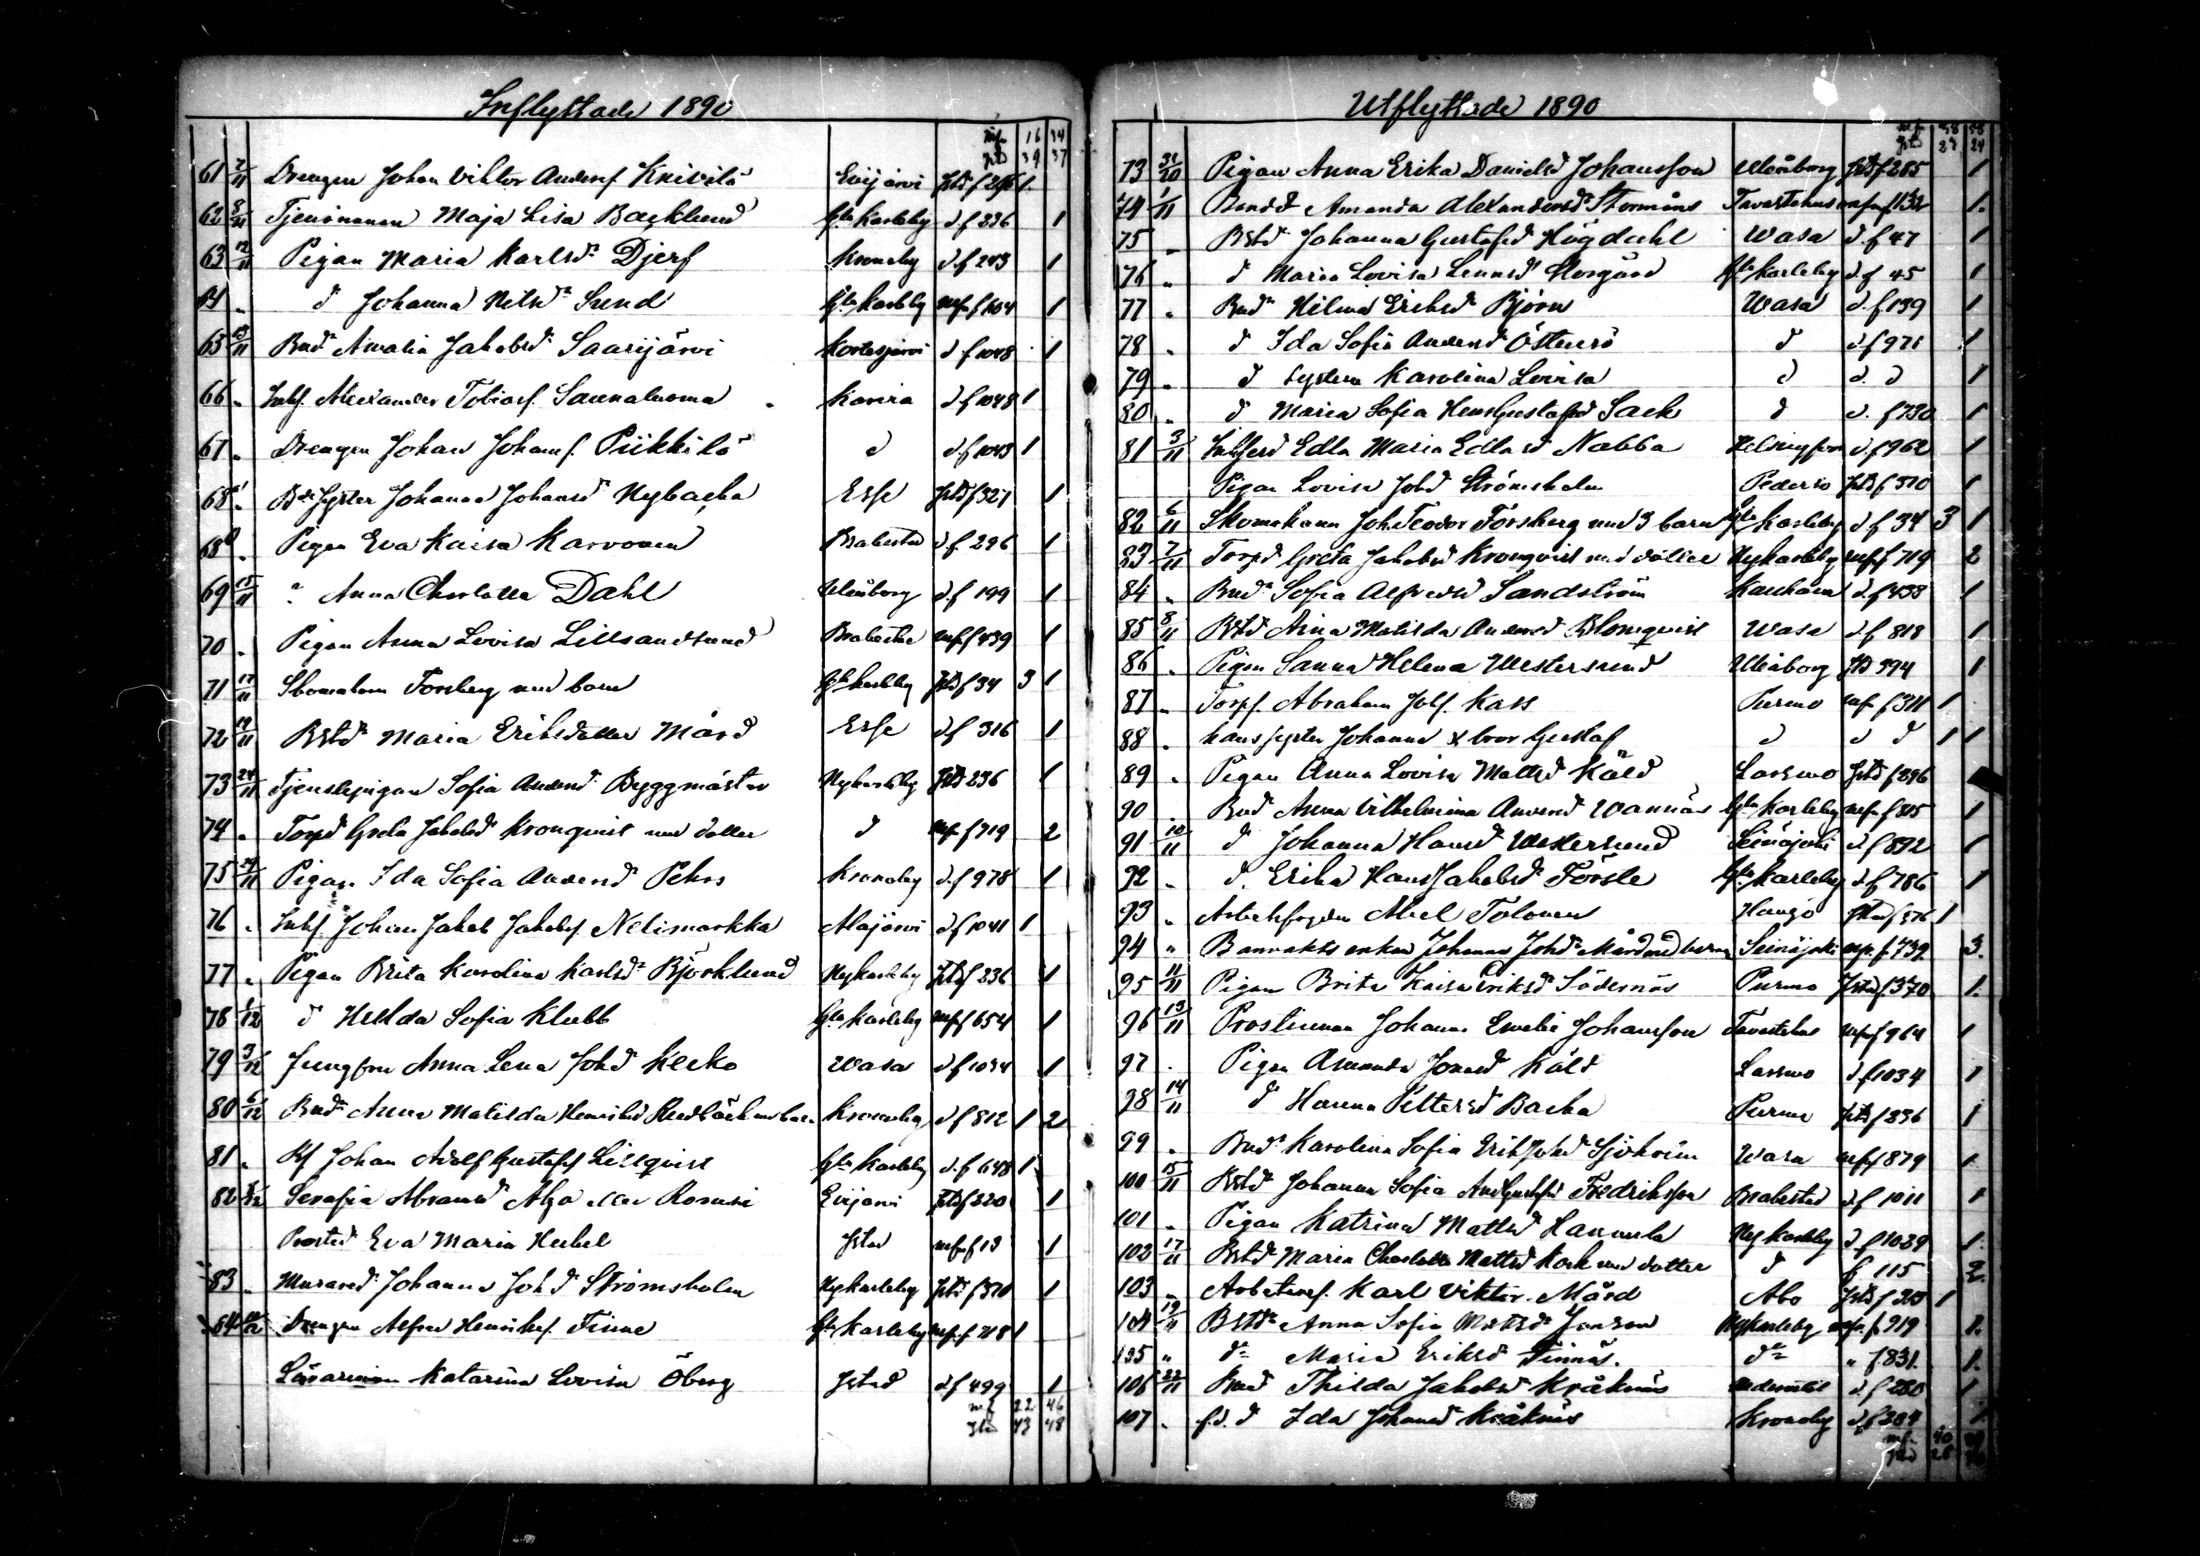 Inflyttade 1890
mf. 16 34
Jstd 39 37
61 7/11 Drengen Johan Viktor Andersf Knivilä Evijärvi Jstd f 296 1
62 8/11 Tjenarinnan Maja Lisa Backlund Gla Karleby d f 236 1
63 12/11 Pigan Maria Karlsdr Djerf Kronoby d f 243 1
64 " d Johanna Nilsdr Sund Gla Karleby mf f 1104 1
65 13/11 Bndr Amalia Jakobsdr Saarijärvi Kortesjärvi d f 1048 1
66 " Inhs. Alexander Tobiasf. Saunaluoma Kavira d f 1048 1
67 " Drengen Johan Johansf. Piikkilä d d f 1043 1
68 " Bde Syster Johanna Johansdr Nybacka Esse Jstd f 327 1
68b " Pigan Eva Kaisa Karvonen Brahestad d f 296 1
69 15/11 " Anna Charlotta Dahl Uleåborg d f 199 1
70 " Pigan Anna Lovisa Lillsandsund Brahestad mf f 439 1
71 17/11 Skomakare Forsberg med barn Gla Karleby Jstd f 34 3 1
72 19/11 Bstdr Maria Eriksdotter Mård Esse d f 316 1
73 24/11 Tjenstepigan Sofia Andersdr Byggmästar Nykarleby Jstd 236 1
74 " Torpd Greta Jakobsd Kronqvist med dotter d mf f 719 2
75 29/11 Pigan Ida Sofia Andersd Pehrs Kronoby d f 978 1
76 " Inhs Johan Jakob Jakobsf. Nelimarkka Alajärvi d f 1041 1
77 " Pigan Brita Karolina Karlsdr Björklund Nykarleby Jstd f 236 1
78 1/12 d Hulda Sofia Klubb Gla Karleby mf f 654 1
79 3/12 Jungfru Anna Lena Johd Kecko Wasa d f 1034 1
80 6/12 Bndr Anna Matilda Henriksd med barn Kronoby d f 812 1 2
81 " Johan Adolf Gustafsf Lillqvist Gla Karleby d f 648 1
82 Serafia Abramsd Evijärvi Jstd f 220 1
Eva Maria Hubel Jstad mf f 13 1
83 " Johanna Johd Strömsholm Nykarleby Jstd f 310 1
84 Drengen Alfred Henriksf. Finne Gla Karleby mf f 718 1
Katarina Lovisa Öberg Jstad d f 499 1
mf 22 46
Jstd 43 48
Utflyttade 1890
mf.
Jstd
73 31/10 Pigan Anna Erika Danielsd Johansson Uleåborg Jstd f 285 1
74 1/11 Bondd Amanda Alexandersdr Stormåns Tavastehus mf f 1132 1
75 " Bstd Johanna Gustafsd Högdahl Wasa d. f 47 1
76 " d Maria Lovisa Storgård Gla Karleby d f 45 1
77 " Bndr Hilma Eriksd Björn Wasa d. f 139 1
78 " d Ida Sofia Andersd Östersö d d f 971 1
79 " d systern Karolina Lovisa d d. d 1
80 " d Maria Sofia Hans Gustafsd Sack d d. f 730 1
81 3/11 Edla Maria Edlasd Nabba Helsingfors d. f 962 1
Pigan Lovisa Johd Strömsholm Pedersö Jstd f. 310 1
82 6/11 Skomakare Joh. Teodor Forsberg med 3 barn Gla Karleby d f 34 3 1
83 7/11 Torpd Greta Jakobsd Kronqvist med dotter Nykarleby mf f 719 2
84 " Bndr Sofia Alfredsd Sandström Kauhava d f 438 1
85 8/11 Bstd Aina Matilda Andersd Blomqvist Wasa d. f 818 1
86 " Pigan Sanna Helena Westersund Uleåborg Jstd 394 1
87 " Torps. Abraham Kass Purmo mf f 311 1
88 " hans syster Johanna & bror Gustaf d d d 1 1
89 " Pigan Anna Lovisa Mattsd Käld Larsmo Jstd f 396
90 Bnd Anna Vilhelmina Andersd Wannäs Gla Karleby mf f 815 1
91 10/11 d Johanna Hansdr Westerlund Seinäjoki d f 892 1
92 " d. Erika Hans Jakobsd Förste Gla Karleby d f 786 1
93 " Abel Tolonen Hangö 1
94 " Banvakts enkan Johanna Johdr Mård med barn Seinäjoki mf. f. 739 3.
95 11/11 Pigan Brita Kaisa Eriksd Södernäs Purmo Jstd f. 370 1.
96 13/11 Prostinnan Johanna Emelie Johansson Tavastehus mf f 964 1
97 " Pigan Amanda Jonasd Käld Larsmo d f 1034 1
98 14/11 d Hanna Pettersd Backa Purmo Jstd f 336 1
99 " Bndr Karolina Sofia Erik Johsd Sjöholm Wasa mf f 879 1
100 15/11 Bstdr Johanna Sofia And Gustafsd Fredriksson Brahestad d f 1011 1
101 " Pigan Katrina Mattsd Hannula Nykarleby d f 1039 1
102 17/11 Bstdr Maria Charlotta Mattsd Kock med dotter d f 115 2.
103 " Arbetaref. Karl Viktor Mård Åbo 1
104 19/11 Bstdr Anna Sofia Mattsd Jonson Nykarleby mf. f. 919 1.
105 " dr Maria Eriksd Finnäs. dr " f. 831. 1.
106 22/11 Bnd Thilda Jakobsd Kråknäs d f 280 1
107 " f.d. d Ida Johansd Kråknäs Kronoby d f 304 1
mf.
Jstd